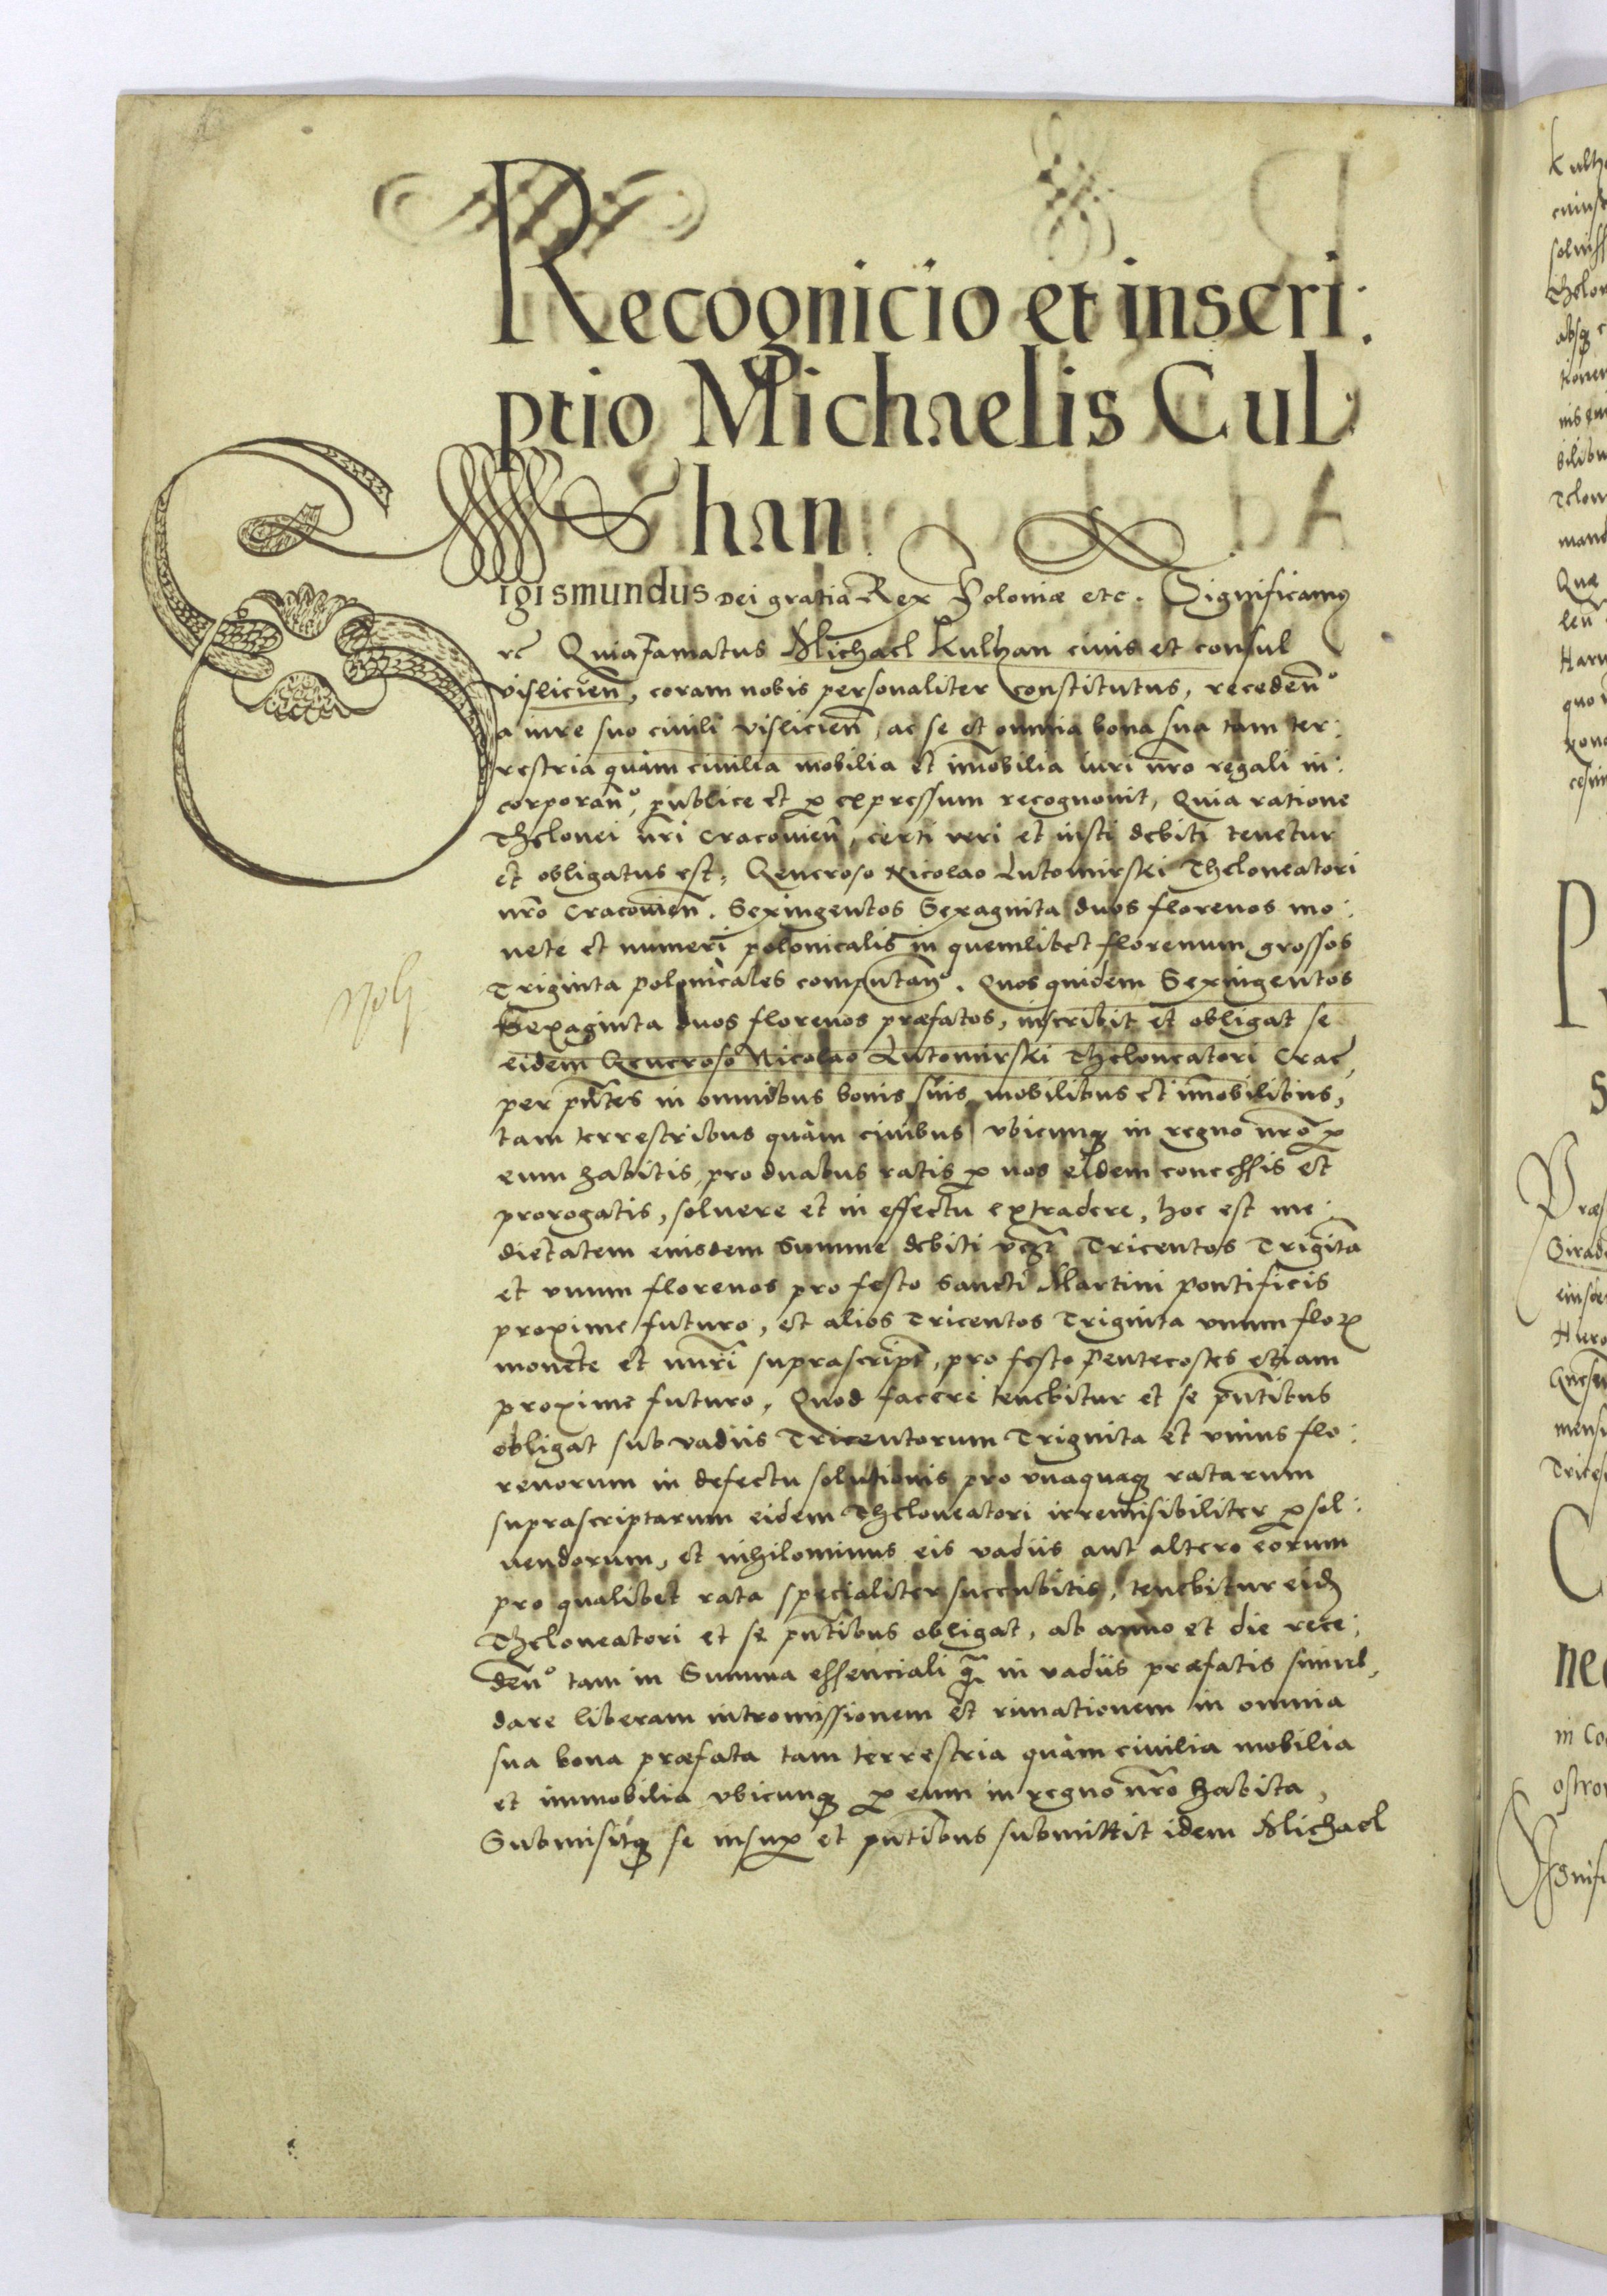 Recognicio et inscri:
ptio Michaelis Cul
han
Sigismundus Dei gratia Rex Poloniæ etc. Significamus
rc Quia famatus Michael Kulhan civis et consul
visliciens̄, coram nobis personaliter constitutus, recedeñ
a iure suo civili vislicien̄, ac se et omnia bona sua tam ter:
restria quàm civilia mobilia et im̄obilia iuri nr̄o regali in:
corporañ, publice et p expressum recognovit, Quia ratione
Thelonei nr̄i Cracovien̄, certi veri et iusti debiti tenetur
et obligatus est, Generoso Nicolao Lutomirski Theloneatori
nr̄o Cracovien̄. Sexingentos Sexaginta duos florenos mo:
nete et numeri polonicalis in quemlibet florenum grossos
Triginta polonicales computan̄. Quos quidem Sexingentos
Sexaginta duos florenos præfatos, inscribit et obligat se
eidem Generoso Nicolao Lutomirski Theloneatori Crac̄,
per pn̄tes in omnibus bonis suis mobilibus et im̄obilibus,
tam terrestribus quàm civibus ubicunq in regno nr̄o p
eum habitis, pro duabus ratis p nos eidem concessis et
prorogatis, solvere et in effectu extradere, hoc est me:
dietatem eiusdem Summe debiti vcz̄ Tricentos Triginta
et unum florenos pro festo Sancti Martini pontificis
proxime futuro, et alios Tricentos Triginta unum flor
monete et nūri suprascript̄, pro festo Pentecostes etiam
proxime futuro, Quod facere tenebitur et se pn̄tibus
obligat sub vadiis Tricentorum Triginta et unius flo:
renorum in defectu solutionis pro unaquaq ratarum
suprascriptarum eidem Theloneatori irremisibiliter p sol:
vendorum, et nihilominus eis vadiis aut altero eorum
pro qualibet rata specialiter succubitis, tenebitur eid
Theloneatori et se pn̄tibus obligat, ab anno et die rece:
den̄ tam in Summa essenciali q̄ in vadiis præfatis simul,
dare liberam intromissionem et rimationem in omnia
sua bona præfata tam terrestria quàm civilia mobilia
et immobilia ubicunq p eum in regno nr̄o habita,
Submisitq se insup et pn̄tibus submittit idem Michael